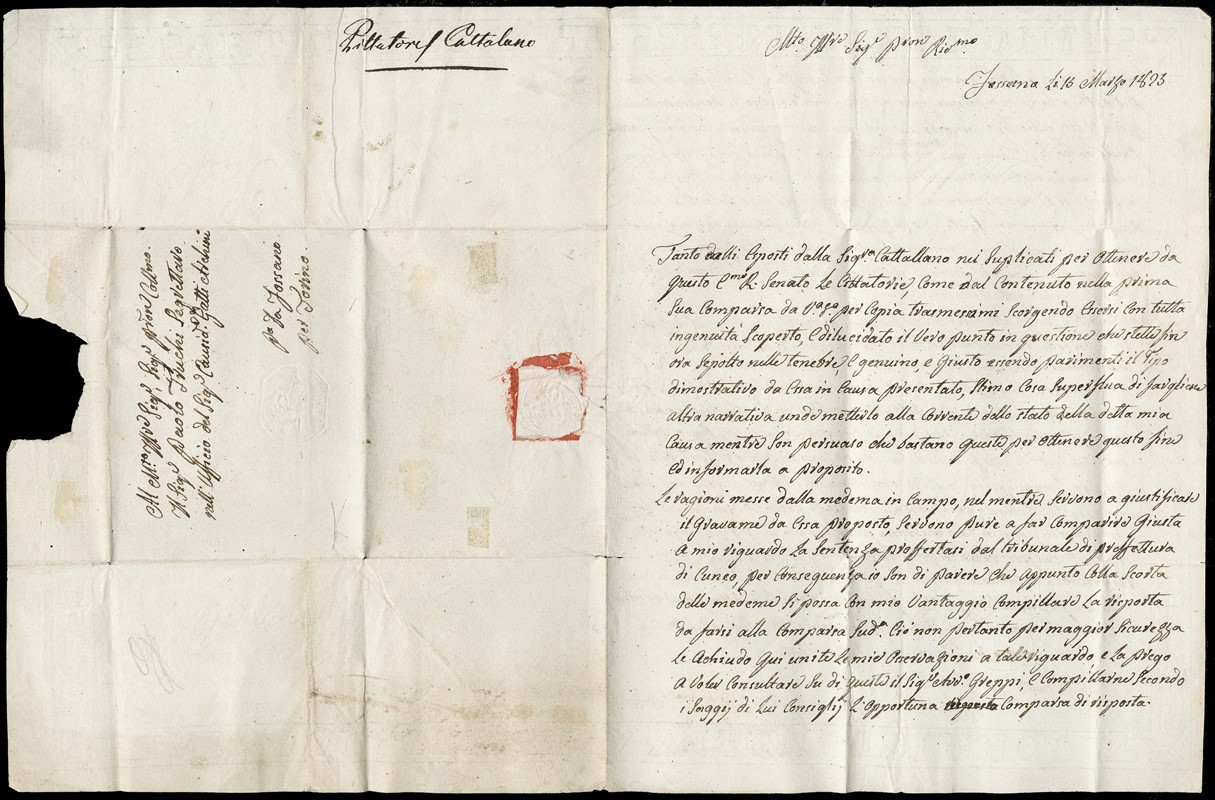 Pittatore / Cattalano
Al M.to Ill.re Sig.r Sig.r Pron Col.mo
Il Sig.r Paolo Truchi Segrettaro
nell'Ufficio del Sig.r Causid.co Gatti
p.a da Fossano
per Torino.
M.to Ill.re Sig.r Pron Riv.mo
Fossano Li 15 Marzo 1823
Tanto dalli Esposti dalla Sig.ra Cattallano nei Suplicati per Ottenere da
questo E.mo R. Senato Le Citatorie, Come dal Contenuto nella prima
Sua Comparsa da V.a S.a per Copia trasmessimi Scorgendo Essersi Con tutta
ingenuità Scoperto, E dilucidato il Vero punto in questione che stette fin
ora Sepolto nelle tenebre E genuino, e Giusto essendo parimenti il Tipo
dimostrativo da Essa in Causa presentato, Stimo Cosa Superflua di fargliene
altra narrativa onde metterlo alla Corrente dello stato della detta mia
Causa mentre Son persuaso che bastano queste per Ottenere questo fine
Ed informarla a proposito.
Le ragioni messe dalla medema in Campo, nel mentre Servono a giustificare
il Gravame da Essa proposto, Servono pure a far Comparire Giusta
a mio riguardo La Sentenza proffertasi dal tribunale di preffettura
di Cuneo, per Conseguenza io Son di parere che appunto Colla Scorta
delle medeme Si possa Con mio Vantaggio Compillare La risposta
da farsi alla Comparsa Sud.a Ciò non pertanto per maggior Sicurezza
Le Achiudo Qui unite Le mie Osservazioni a tale riguardo, e La prego
a Voler Consultare Su di queste il Sig.r Avv.o Greppi, E Compillarne Secondo
i Saggij di Lui Consiglij L'Opportuna Comparsa di risposta.